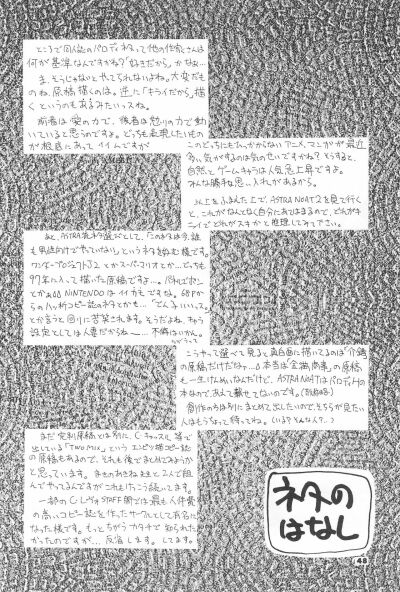 ところで同人誌のパロディネタって他の作家さんは
何が基準なんですかね?「好きだから」かなぁ…
ま、そうじゃないとやってられないよね。大変だも
のね、原稿描くのは。逆に「キライだから」描
くというのもあるみたいっスね。
前者は愛の力で、後者は怒りの力で動
いていると思うのですよ。どっちも表現したいもの
が根底にあってイイんですが
このどっちにもひっかからないアニメ、マンガが最近
多い気がするのは気のせいですかね?そうすると、
自然とゲームキャラは人気急上昇ですよ。
みんな勝手な思い入れがあるから。
以上をふまえた上で、ASTRA NOAT2を見て行く
と、これがなんとなく自分にあてはまるので、どれがキ
ライでどれがスキかと推理してみて下さい。
あと、ASTRA流ネタ選びとして、「このネタは今、誰
も男性向けでやっていない」というネタを好む様です。
ワンダープロジェクトJ2とかスーパーマリオとか…どっちも
97年に入って描いた原稿ですよ…。
とか NINTENDOはイイカモですね。
からのハッ折コピー誌のネタとかも…「どえれぃいい…」
とか言うと回りに苦笑されます。そうだよね、キャラ
設定としては人妻だからねー 不倫はいかん。
こうやって選べて見ると真面目に描いてるのは
の原稿だけだなァ…本当は の原稿
も一生けんめいなんだけど、ASTRA NOATはパロディHの
本なので、あえて載せてないのです。
創作の方は別にまとめて出したいので、そちらが見たい
人はもうちょっと待っててね。(いる?そんな人?…)
まだ完売原稿とは別に、Cチャッスル等で
出している「TWO MIX」というエンピツ描コピー誌
の原稿もあるので、それも後でまとめてみようか
と思っています。まきのあきねゑ士と2人で組
んでやってるんですがこれもけっこう続いてます。
一部のCレヴォSTAFF間では最も人件費
の高いコピー誌を作ったサークルとして有名に
なった様です。もっとちがうカタチで知られた
かったのですが…反省します。してます。
ネタの
はなし
48